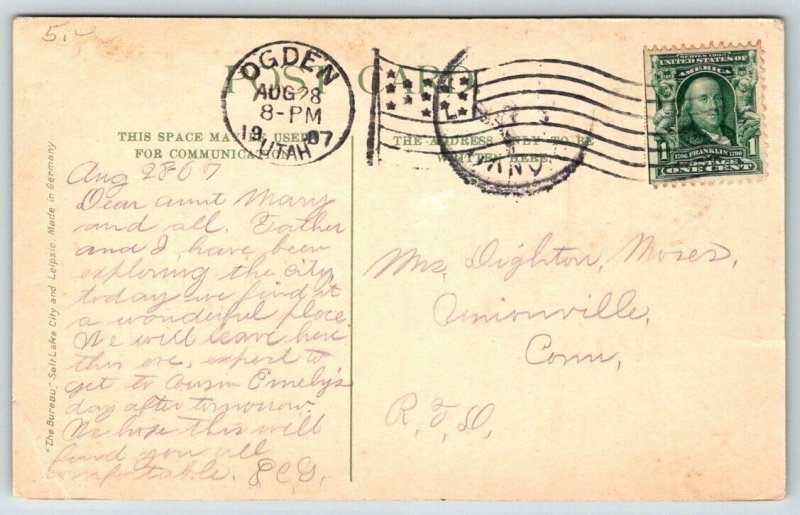 5.
OGDEN
AUG 28
8-PM
1907
UTAH
POST CARD
THIS SPACE MAY BE USED
FOR COMMUNICATION
THE ADDRESS ONLY TO BE
WRITTEN HERE.
SERIES 1902
UNITED STATES OF
AMERICA
1 FRANKLIN 1
POSTAGE
ONE CENT
CONN
Aug 28 07
Dear aunt Mary
and all. Father
and I, have been
exploring the city,
today we find it
a wonderful place.
We will leave here
this eve, expect to
get to Cousin Emely's
day after tomorrow.
We hope this will
find you all
comfortable.
Mrs, Dighton, Moses,
Unionville,
Conn,
R, F, D,
"The Bureau," Salt Lake City and Leipsic. Made in Germany